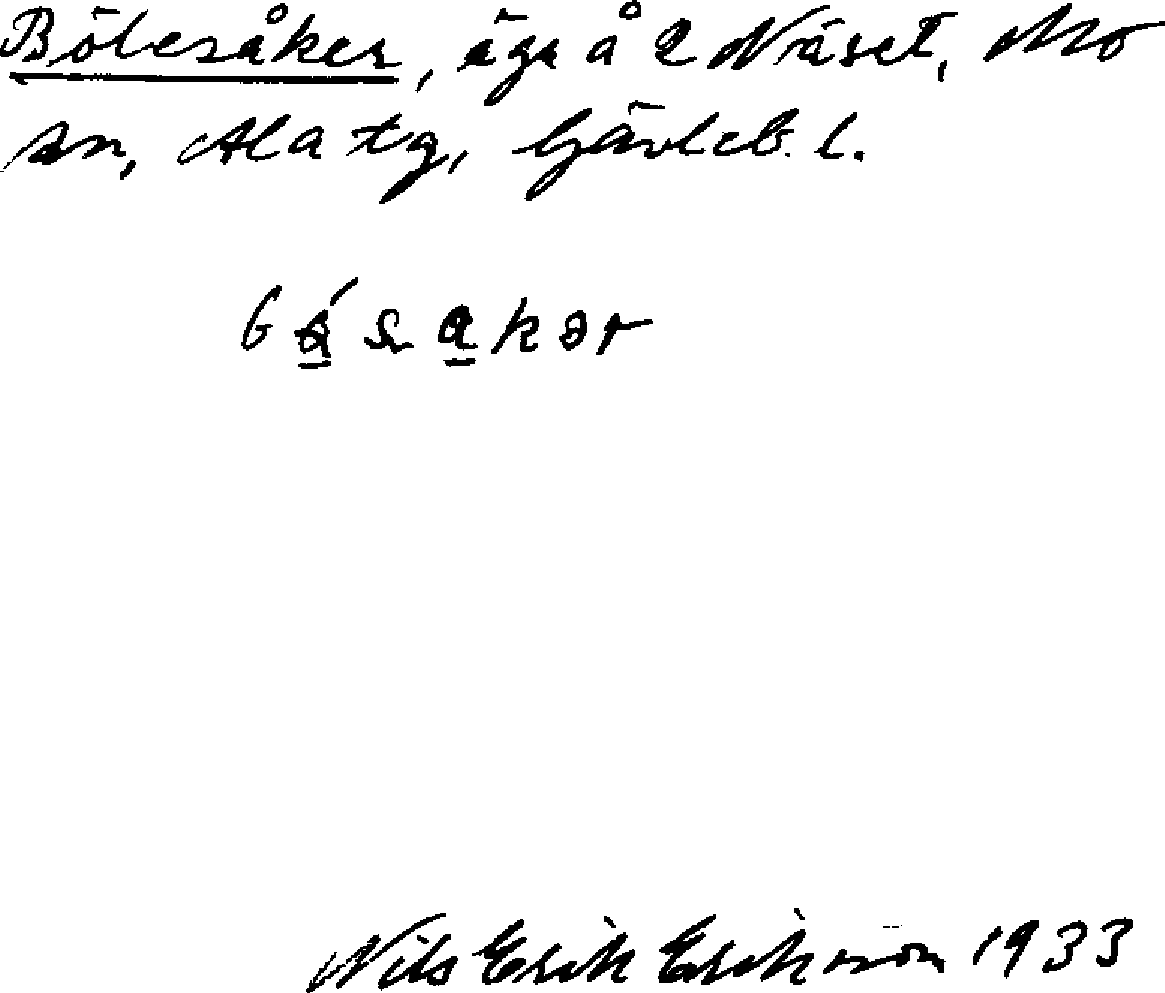 Bölesåker, äga å 2 Näset, Mo
sn, Ala tg, Gävleb. l.
Nils Erik Eriksson 1933